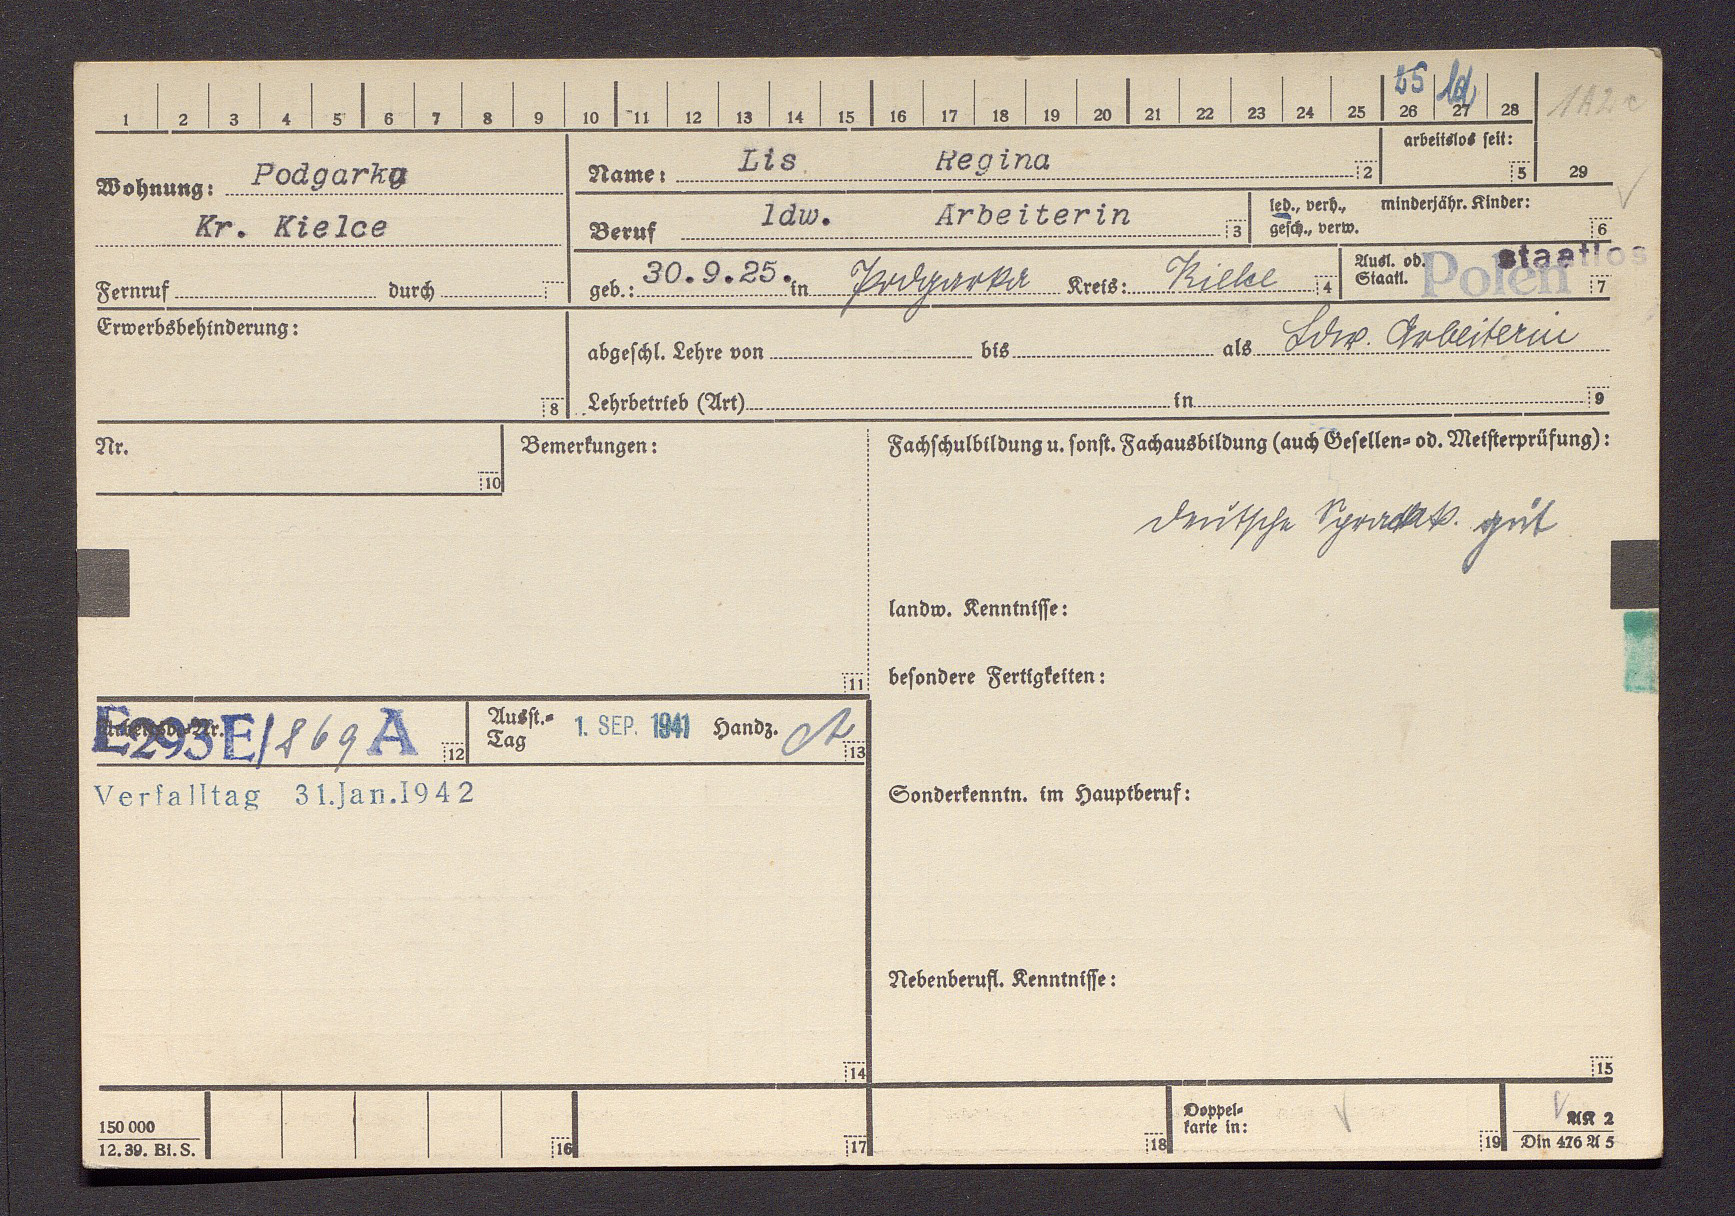 25 ld
1 2 3 4 5 6 7 8 9 10 11 12 13 14 15 16 17 18 19 20 21 22 23 24 25 26 27 28
1A2c
arbeitslos seit:
5
29
Wohnung: Podgarka
Kr. Kielce
Name: Lis Regina
2
Beruf ldw. Arbeiterin
3
led., verh., minderjähr. Kinder:
gesch., verw.
6
Fernruf durch
geb.: 30.9.25. in Podgarka Kreis: Kielce
4
Ausl. od.
Staatl. Polen staatlos
7
Erwerbsbehinderung:
8
abgeschl. Lehre von bis als Ldw. Arbeiterin
Lehrbetrieb (Art) in
9
Nr.
10
Bemerkungen:
11
Fachschulbildung u. sonst. Fachausbildung (auch Gesellen- od. Meisterprüfung):
deutsche Sprachk. gut
landw. Kenntnisse:
besondere Fertigkeiten:
Sonderkenntn. im Hauptberuf:
Nebenberufl. Kenntnisse:
15
E293E/869 A
12
Ausst.-
Tag 1. SEP. 1941 Handz.
13
Verfalltag 31.Jan.1942
14
150 000
12.39. Bl. S.
16
17
18
Doppel-
karte in:
19
AK 2
Din 476 A 5